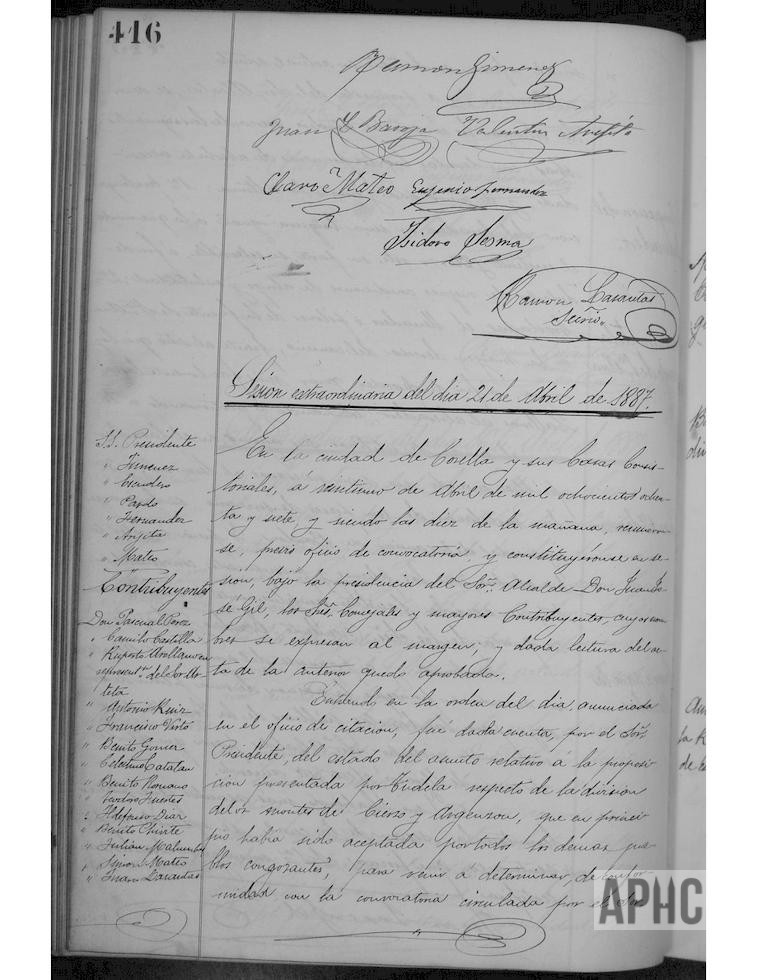 416
Ramon Gimenez
Juan L Baroja Valentin
Claro Mateo Eugenio Fernandez
Isidoro Sesma
Ramon Darautas
Srio.
Sesion extraordinaria del dia 21 de Abril de 1887.
S.S. Presidente
" Jimenez
" Escudero
" Pardo
" Fernandez
" Arijita
" Mateo
Contribuyentes
Don Pascual Perez
" Camilo Castilla
" Ruperto Arellano en
represent.n del Sor
teta
" Antonio Ruiz
" Francisco Virto
" Benito Gomez
" Celestino Catalan
" Benito Romano
" Teodoro Fuertes
" Ildefonso Diaz
" Benito Chivite
" Julián Malumbres
" Simon Mateo
" Juan Darautas
En la ciudad de Corella y sus Casas Consis-
toriales, á veintiuno de Abril de mil ochocientos ochen-
ta y siete, y siendo las diez de la mañana, reunieron-
se, previo oficio de convocatoria y constituyéronse en se-
sion, bajo la presidencia del Sor. Alcalde Don Juan Jo-
sé Gil, los Sres. Concejales y mayores Contribuyentes, cuyos nom-
bres se expresan al margen; y dada lectura del ac-
ta de la anterior quedó aprobada.
Entrando en la orden del dia, anunciada
en el oficio de citacion, fué dada cuenta, por el Sor.
Presidente, del estado del asunto relativo á la proposi-
cion presentada por Tudela respecto de la division
de los montes de Cierzo y Argenzon, que en princi-
pio habia sido aceptada por todos los demas pue-
blos congozantes, para venir a determinar, de confor-
midad con la convocatoria circulada por el Sor.
APHC